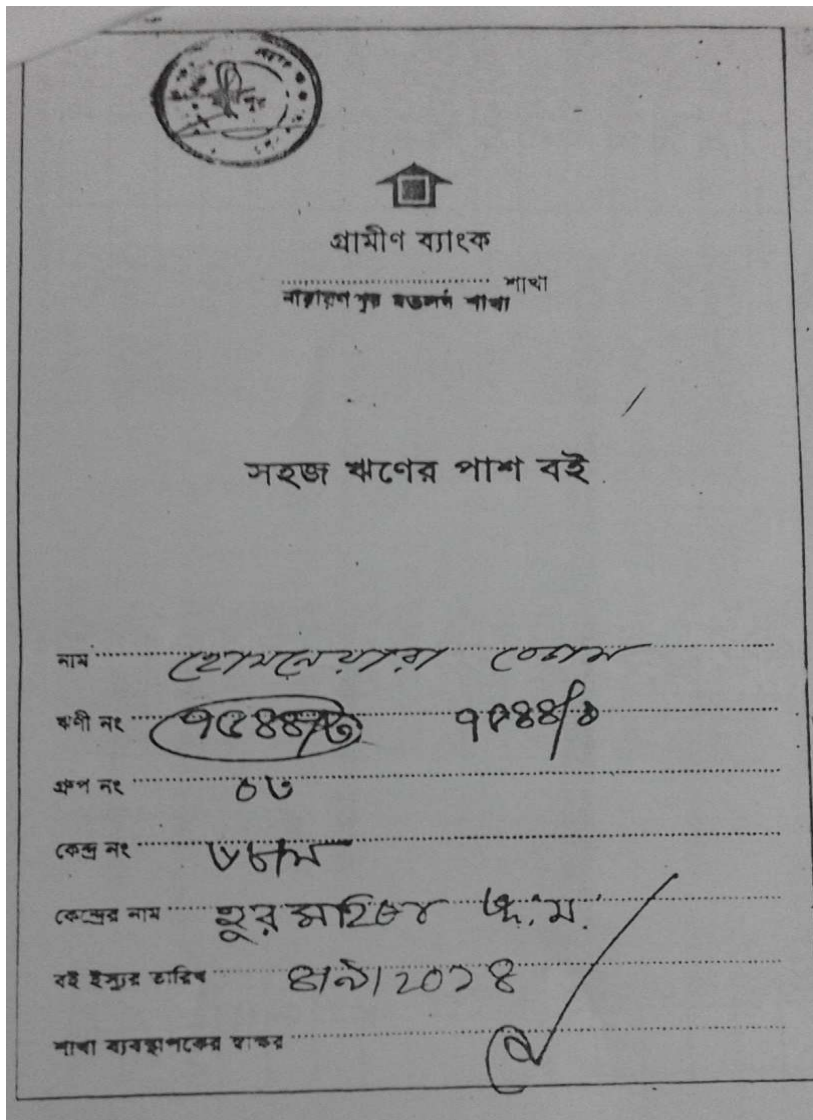 গ্রামীণ ব্যাংক
শাখা
নারায়ণপুর মতলব শাখা
সহজ ঋণের পাশ বই
নাম হোসনেয়ারা বেগম
ঋণী নং ৭৫৪৪/৩ ৭৫৪৪/১
গ্রুপ নং ০৩
কেন্দ্র নং ৬৮/ম
কেন্দ্রের নাম
বই ইস্যুর তারিখ ৪/৯/২০১৪
শাখা ব্যবস্থাপকের স্বাক্ষর